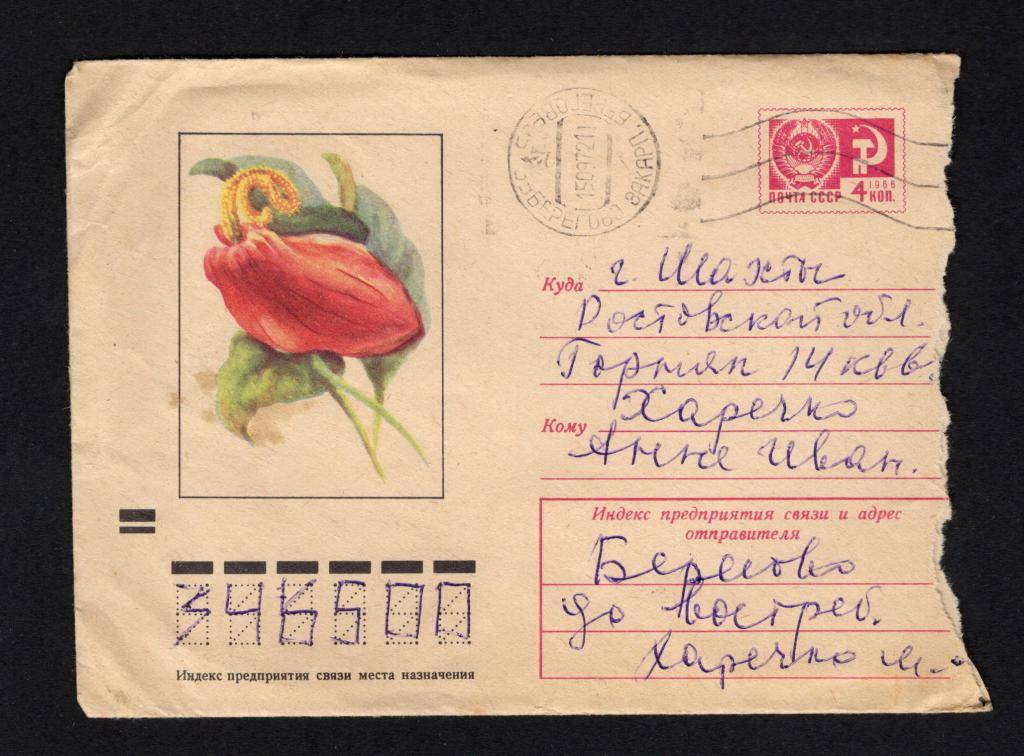 БЕРЕГОВО ЗАКАРП.
150972
БЕРЕГОВО
1966
4 КОП.
ПОЧТА СССР
Куда г. Шахты
Ростовской обл.
Горняк 14 кв
Кому Харечко
Анне Иван.
Индекс предприятия связи и адрес
отправителя
Берегово
до востреб.
Харечко М.
346500
Индекс предприятия связи места назначения